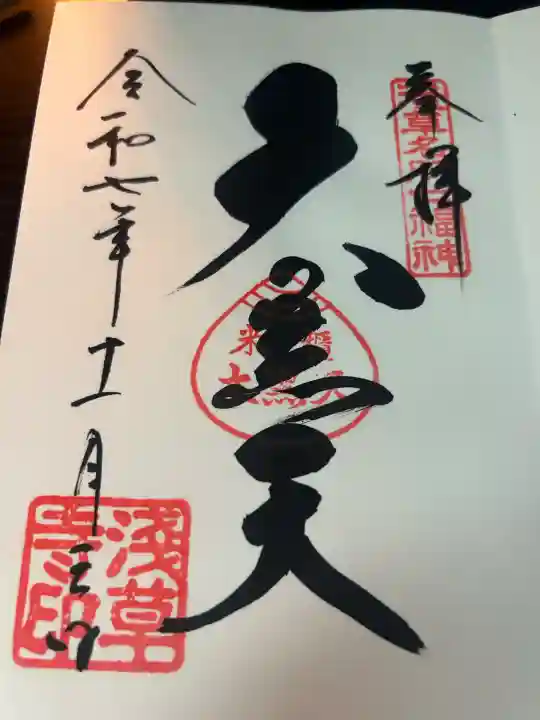 奉拝
浅草名所七福神
大黒天
米櫃
大黒天
令和七年十一月三日
淺草
寺印